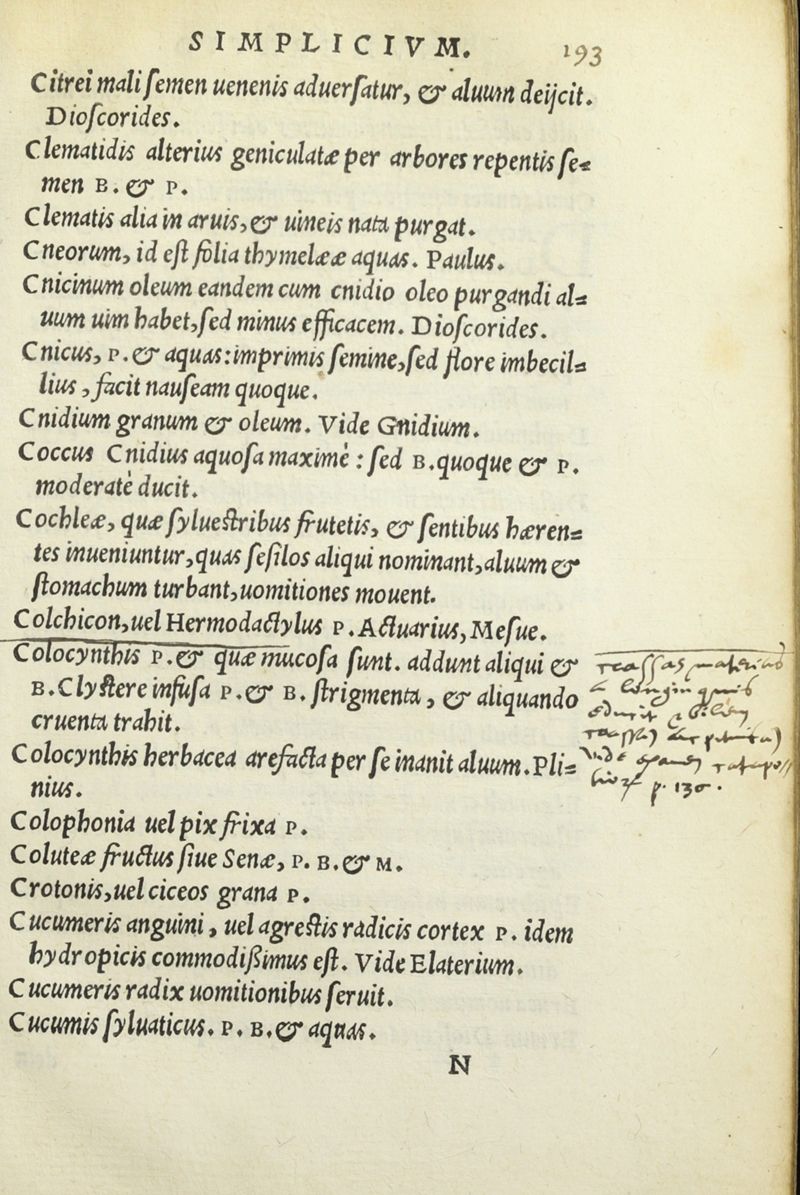 SIMPLICIVM. 193
Citrei mali ſemen uenenis aduerſatur, & aluum deijcit.
Dioſcorides.
Clematidis alterius geniculatæ per arbores repentis ſe-
men B. & P.
Clematis alia in aruis, & uineis nata purgat.
Cneorum, id eſt folia thymelææ aquas. Paulus.
Cnicinum oleum eandem cum cnidio oleo purgandi al-
uum uim habet, ſed minus efficacem. Dioſcorides.
Cnicus, P. & aquas: imprimis ſemine, ſed flore imbecil-
lius, facit nauſeam quoque.
Cnidium granum & oleum. Vide Gnidium.
Coccus Cnidius aquoſa maximè: ſed B. quoque & P.
moderatè ducit.
Cochleæ, quæ ſylueſtribus frutetis, & ſentibus hæren-
tes inueniuntur, quas ſeſilos aliqui nominant, aluum &
ſtomachum turbant, uomitiones mouent.
Colchicon, uel Hermodactylus P. Actuarius, Meſue.
Colocynthis P. & quæ mucoſa ſunt. addunt aliqui &
B. Clyſtere infuſa P. & B. ſtrigmenta, & aliquando
cruenta trahit.
Colocynthis herbacea arefacta per ſe inanit aluum. Pli-
nius.
Colophonia uel pix frixa P.
Coluteæ fructus ſiue Senæ, P. B. & M.
Crotonis, uel ciceos grana P.
Cucumeris anguini, uel agreſtis radicis cortex P. idem
hydropicis commodiſſimus eſt. Vide Elaterium.
Cucumeris radix uomitionibus ſeruit.
Cucumis ſyluaticus. P. B. & aquas.
N